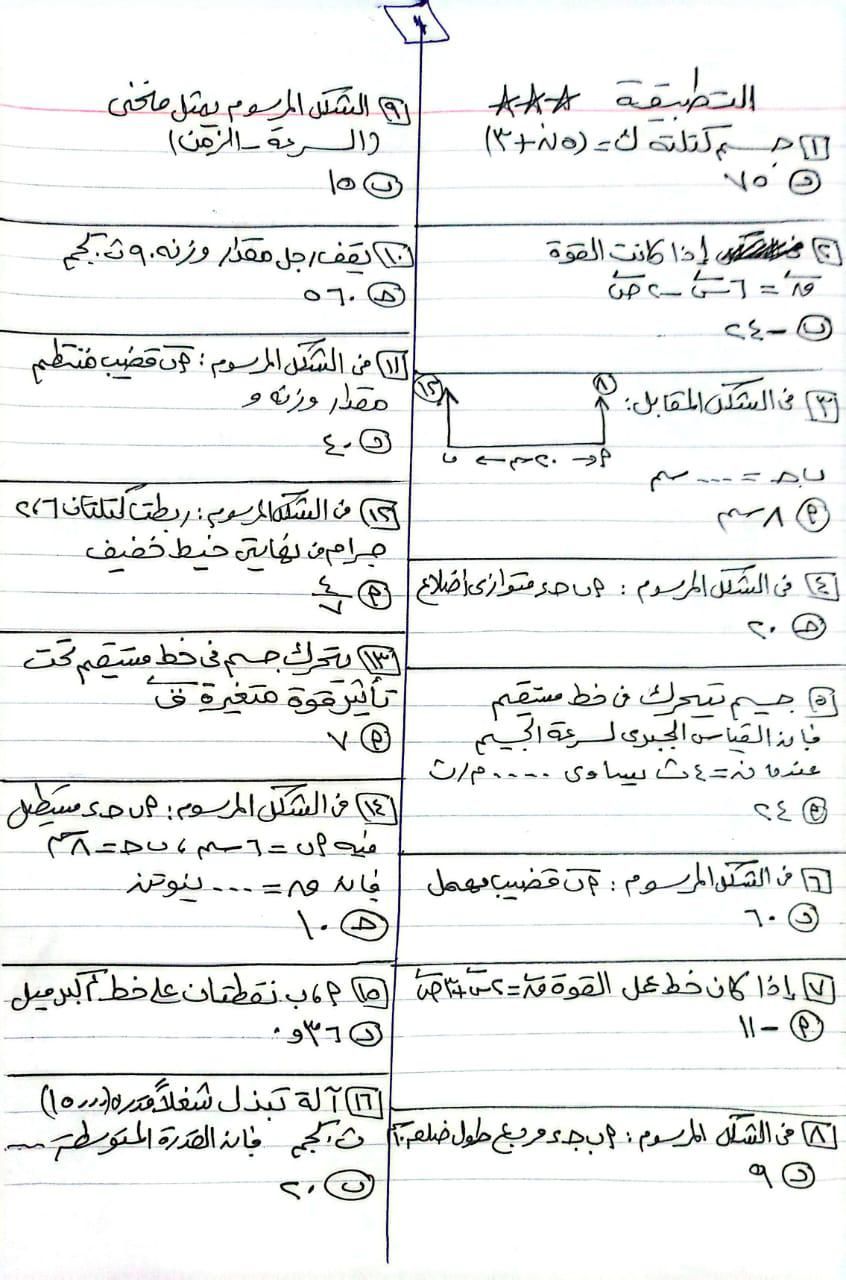 التطبيقية
١ جسم كتلته ك = (٥ن + ٣)
د ٧٥
٢ إذا كانت القوة
ق = ٦س - ٢ص
ب - ٢٤
٣ فى الشكل المقابل:
٨
١٢
ب ← ٢٠سم → م
ب جـ = ... سم
م ٨ سم
٤ فى الشكل المرسوم: م ب جـ ء متوازى أضلاع
جـ ٢٠
٥ جسم يتحرك فى خط مستقيم
فإن القياس الجبرى لسرعة الجسم
عندما ن = ٤ ث يساوى .... م/ث
م ٢٤
٦ فى الشكل المرسوم: م ب قضيب مهمل
د ٦٠
٧ إذا كان خط عمل القوة ق = ٢س + ٣ص
م - ١١
٨ فى الشكل المرسوم: م ب جـ ء مربع طول ضلعه
د ٩
٩ الشكل المرسوم يمثل منحنى
(السرعة - الزمن)
ب ١٥
١٠ يقف رجل مقدار وزنه ٩٠ ث.كجم
جـ ٥٦٠
١١ فى الشكل المرسوم: م ب قضيب منتظم
مقدار وزنه و
د ٤٠
١٢ فى الشكل المرسوم: ربطت كتلتان ٢،٦
جرام فى نهايتى خيط خفيف
م ٤/٧
١٣ يتحرك جسم فى خط مستقيم تحت
تأثير قوة متغيرة ق
م ٧
١٤ فى الشكل المرسوم: م ب جـ ء مستطيل
فيه م ب = ٦ سم ، ب جـ = ٨ سم
فإن ق = ... نيوتن
جـ ١٠
١٥ م ، ب نقطتان على خط أكبر ميل
د ٣٦ و٠
١٦ آلة تبذل شغلاً قدره (١٥٠٠٠)
ث.كجم فإن القدرة المتوسطة ....
ب ٢٠